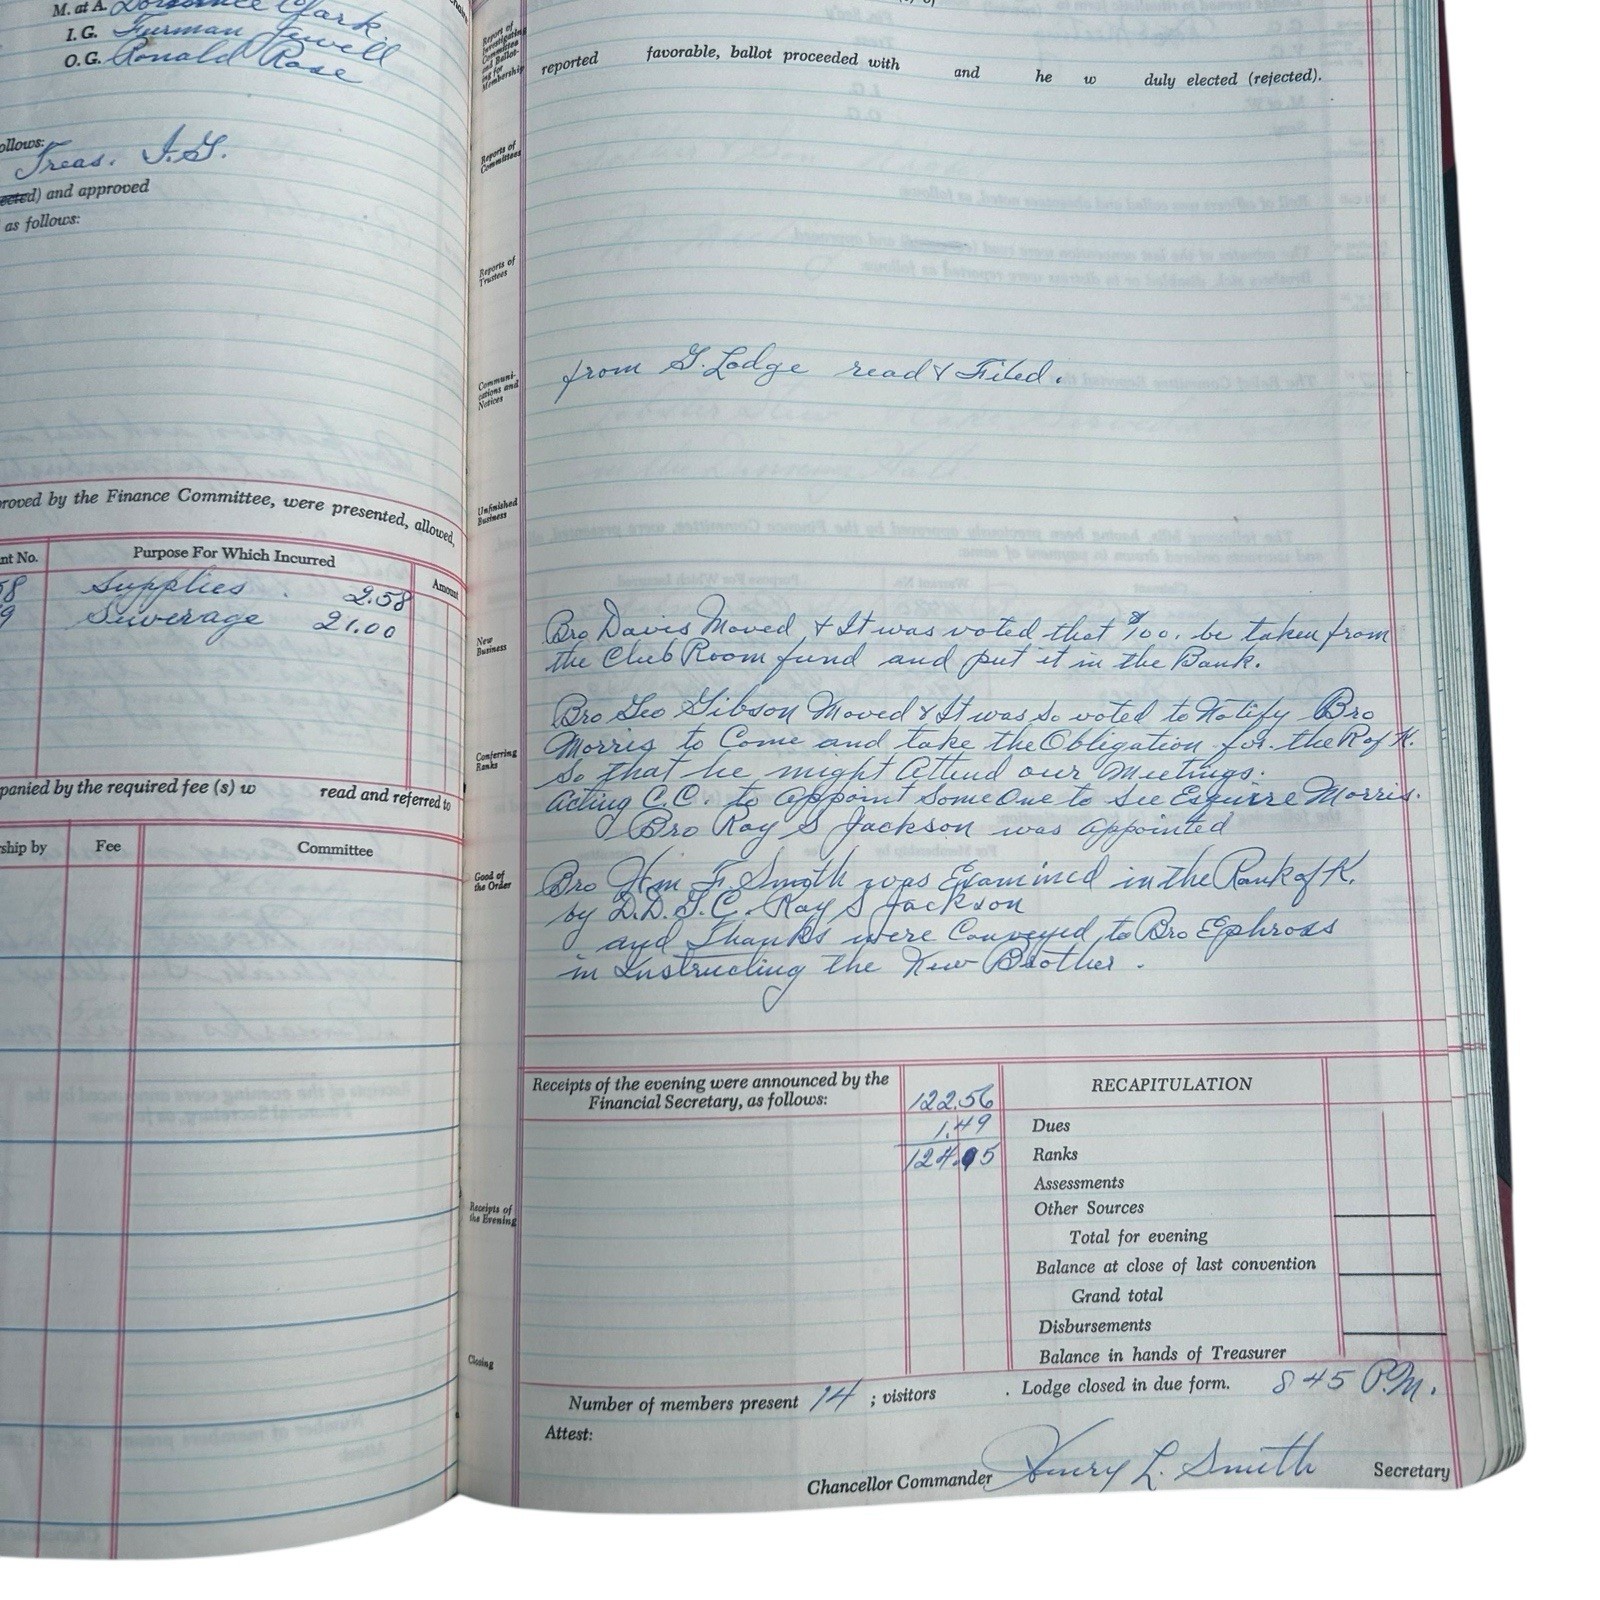 M. at A. Clark
I.G. Furman Jewell
O.G. Ronald Rose
ollows:
Treas. I.G.
ected) and approved
as follows:
proved by the Finance Committee, were presented, allowed,
nt No. Purpose For Which Incurred Amount
58 Supplies . 2.58
9 Sewerage 21.00
panied by the required fee (s) w read and referred to
ship by Fee Committee
Report of Investigating Committee and Balloting for Membership
reported favorable, ballot proceeded with and he w duly elected (rejected).
Reports of Committees
Reports of Trustees
Communications and Notices
from G. Lodge read & Filed.
Unfinished Business
New Business
Bro Davis Moved & It was voted that $100. be taken from
the Club Room fund and put it in the Bank.
Bro Geo Gibson Moved & It was so voted to Notify Bro
Conferring Ranks
Morris to Come and take the Obligation for the R of K.
so that he might Attend our Meetings.
Acting C.C. to Appoint Some One to see Esquire Morris.
Bro Ray S Jackson was Appointed
Good of the Order
Bro Wm F. Smith was Examined in the Rank of K.
by D.D.G.C. Ray S Jackson
and Thanks were Conveyed to Bro Ephross
in Instructing the New Brother.
Receipts of the evening were announced by the
Financial Secretary, as follows:
122.56
1.49
124.05
RECAPITULATION
Dues
Ranks
Assessments
Other Sources
Total for evening
Balance at close of last convention
Grand total
Disbursements
Balance in hands of Treasurer
Receipts of the Evening
Closing
Number of members present 14 ; visitors . Lodge closed in due form. 8 45 P.M.
Attest:
Chancellor Commander Henry L. Smith Secretary